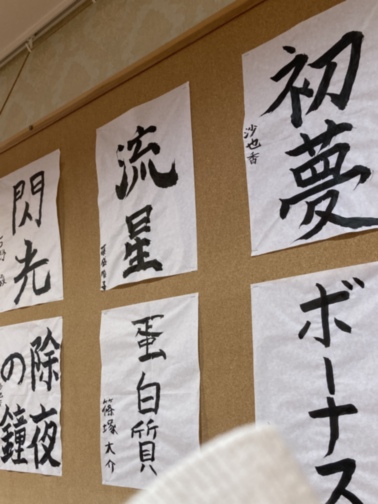 初夢
沙也香
流星
閃光
ボーナス
蛋白質
篠塚大介
除夜
の鐘